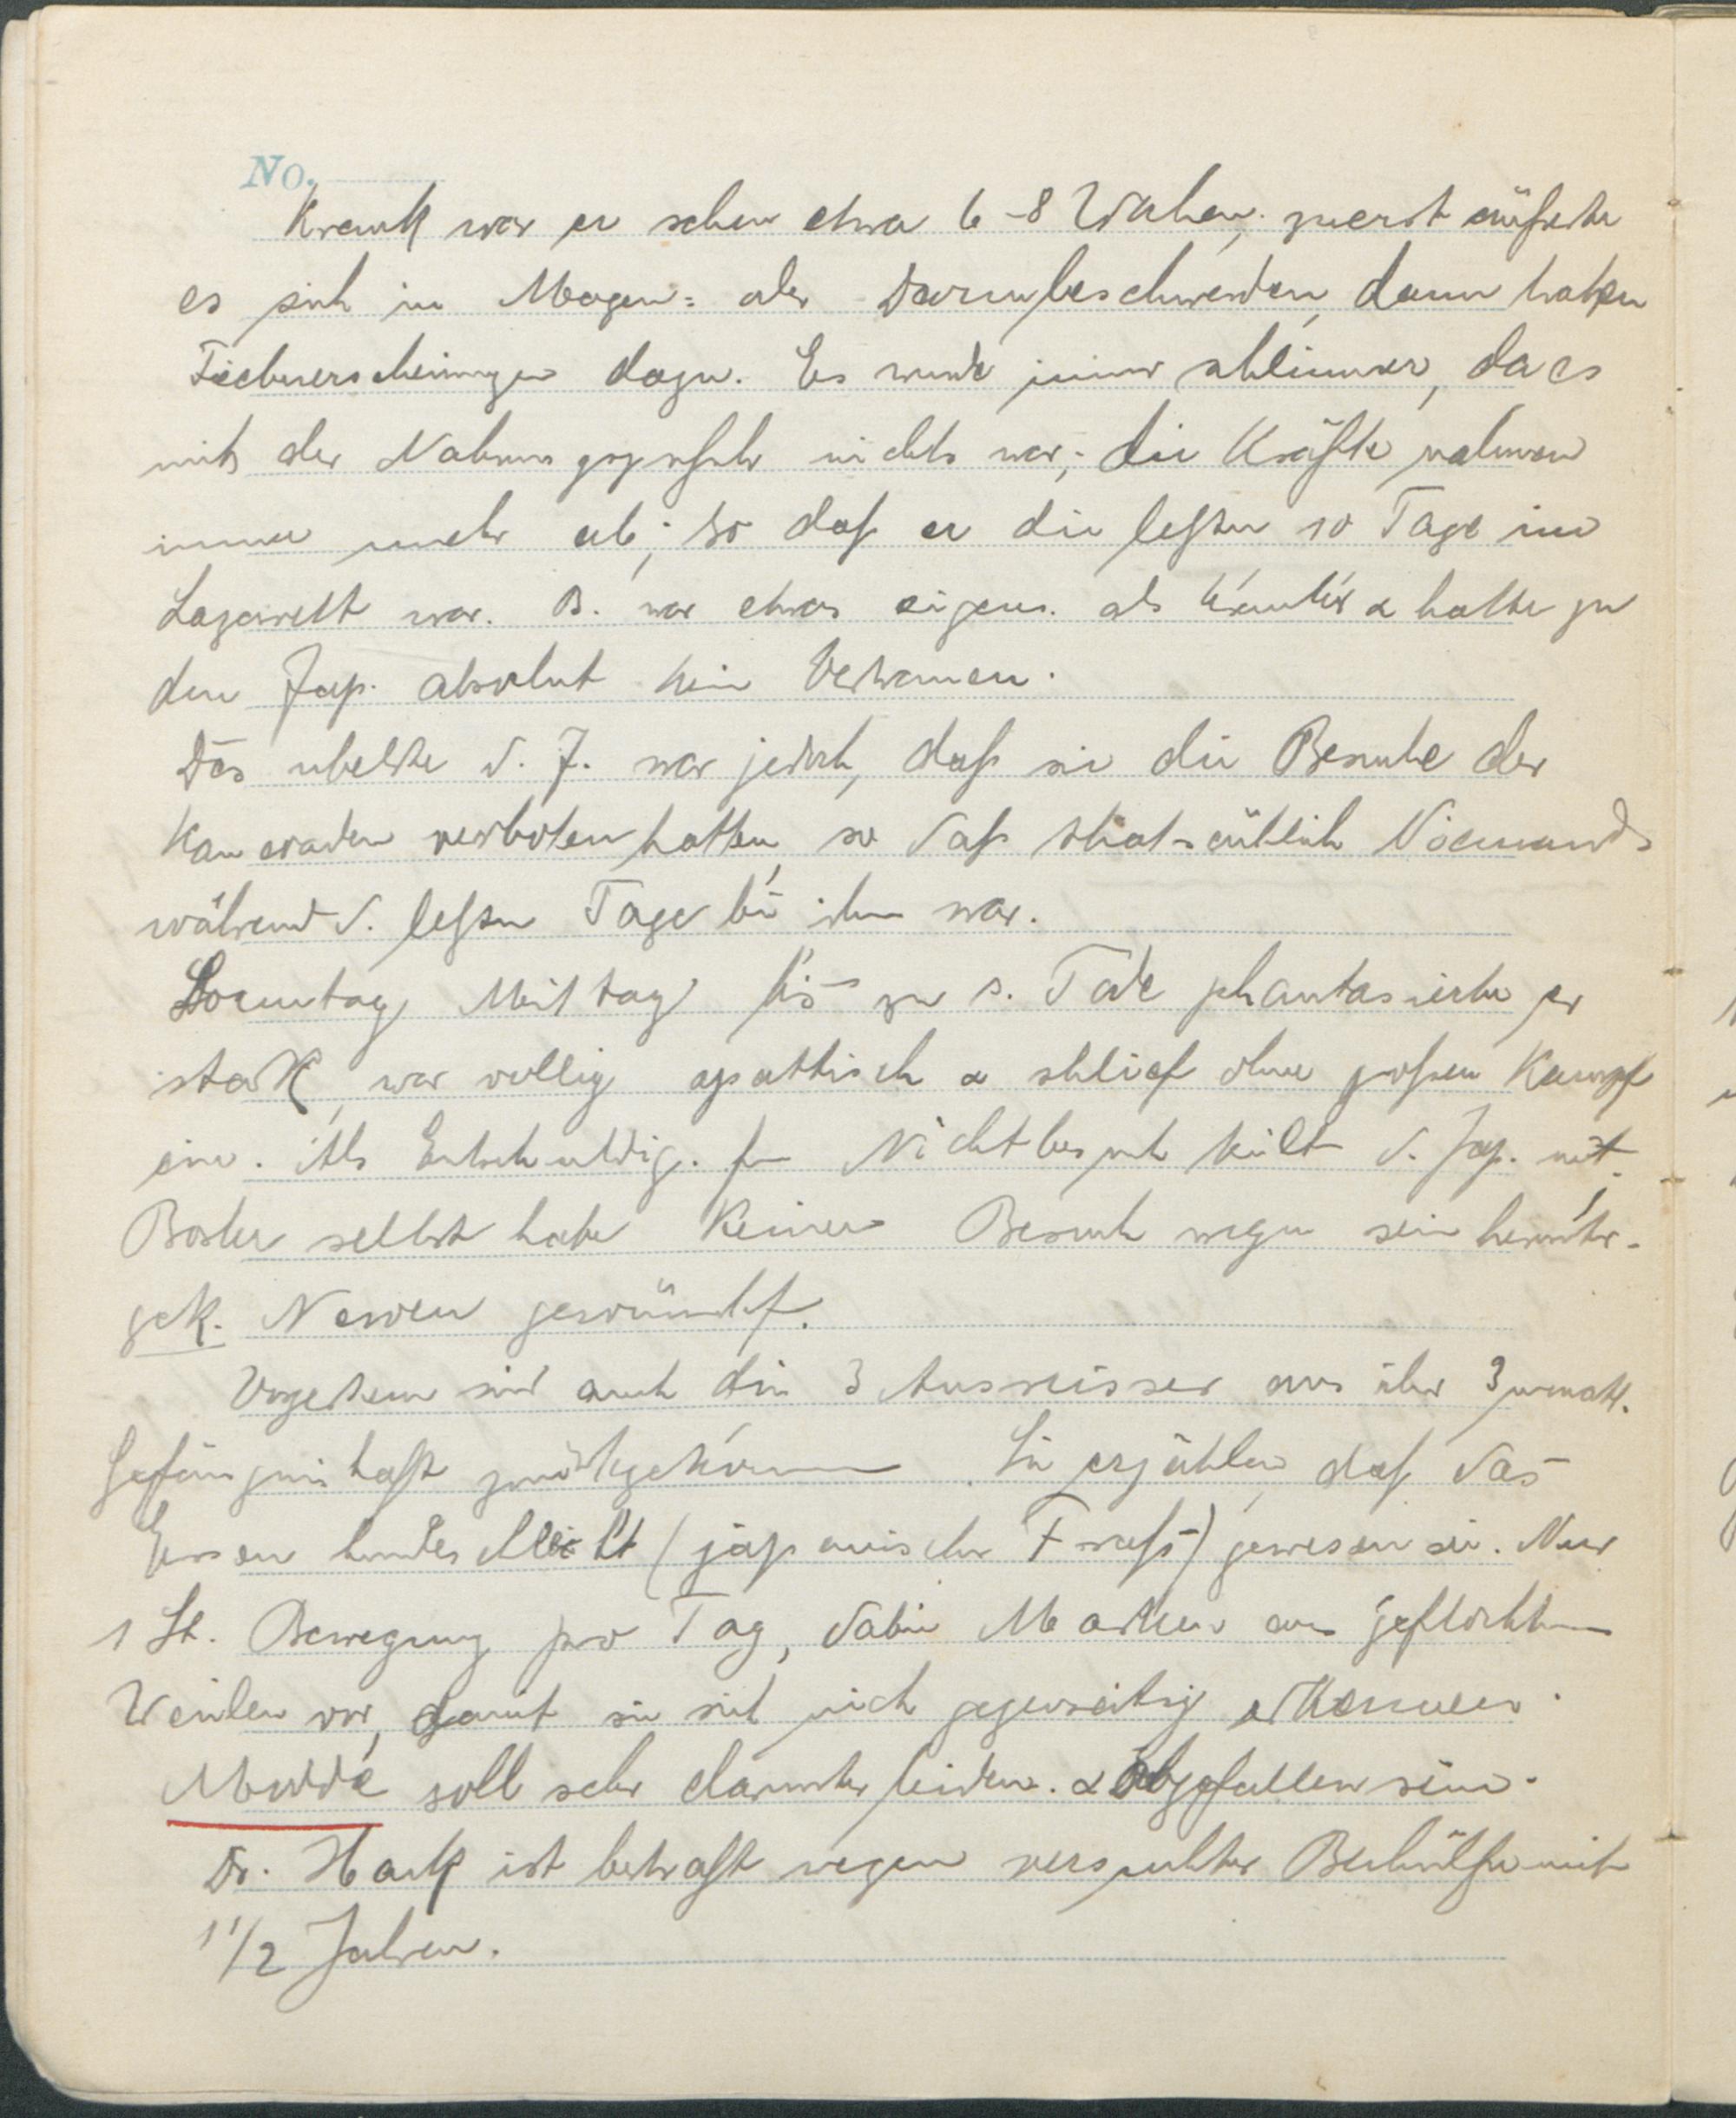 No.
Krank war er schon etwa 6-8 Wochen, zuerst äußerte
es sich in Magen= oder Darmbeschwerden, dann traten
Fiebererscheinungen dazu. Es wurde immer schlimmer, da es
mit der Nahrungszufuhr nichts war; die Kräfte nahmen
immer mehr ab; so daß er die letzten 10 Tage im
Lazarett war. B. war etwas eigens. als Kranker & hatte zu
den Jap. absolut kein Vertrauen.
Das übelste d. J. war jedoch, daß sie die Besuche der
Kameraden verboten hatten, so daß thatsächlich Niemand
während d. letzten Tage bei ihm war.
Sonntag Mittag bis zu s. Tode phantasierte er
stark, war völlig apathisch & schlief ohne großen Kampf
ein. Als Entschuldig. für Nichtbesuch teilt d. Jap. mit,
selbst habe keinen Besuch wegen sein herunter-
gek. Nerven gewünscht.
Vorgestern sind auch die 3 Ausreisser aus über 3 monatl.
Gefängnishaft zurückgekommen. Sie erzählen, daß das
Essen hundeschlecht (japanischer Frass) gewesen sei. Nur
1 St. Bewegung pro Tag, dabei Masken aus geflochtenen
Weiden vor, damit sie sich nicht gegenseitig erkennen.
soll sehr darunter leiden. & abgefallen sein.
Dr. Hack ist bestraft wegen versuchter Beihülfe mit
1 1/2 Jahren.